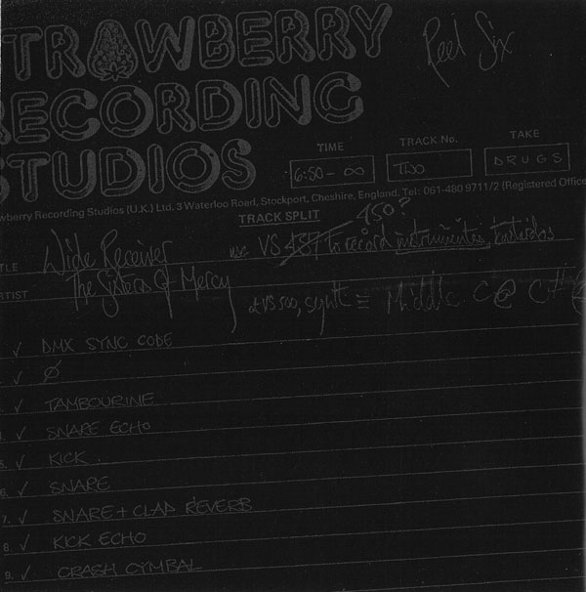 Reel Six
TRAWBERRY
RECORDING
STUDIOS
TIME TRACK No. TAKE
6:50 - ∞ TWO DRUGS
wberry Recording Studios (U.K.) Ltd. 3 Waterloo Road, Stockport, Cheshire, England. Tel: 061-480 9711/2 (Registered Office
TRACK SPLIT
450?
TLE Wide Receiver use VS 437 to record
RTIST The Sisters Of Mercy
synth ≡ Middle C @ C#
✓ DMX SYNC CODE
✓ Ø
✓ TAMBOURINE
✓ SNARE ECHO
5. ✓ KICK
6. ✓ SNARE
7. ✓ SNARE + CLAP REVERB
8. ✓ KICK ECHO
9. ✓ CRASH CYMBAL